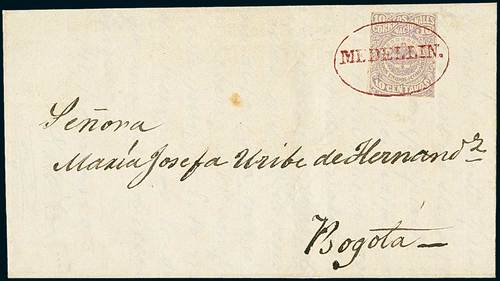 MEDELLIN.
Señora
María Josefa Uribe de Hernandz
Bogotá